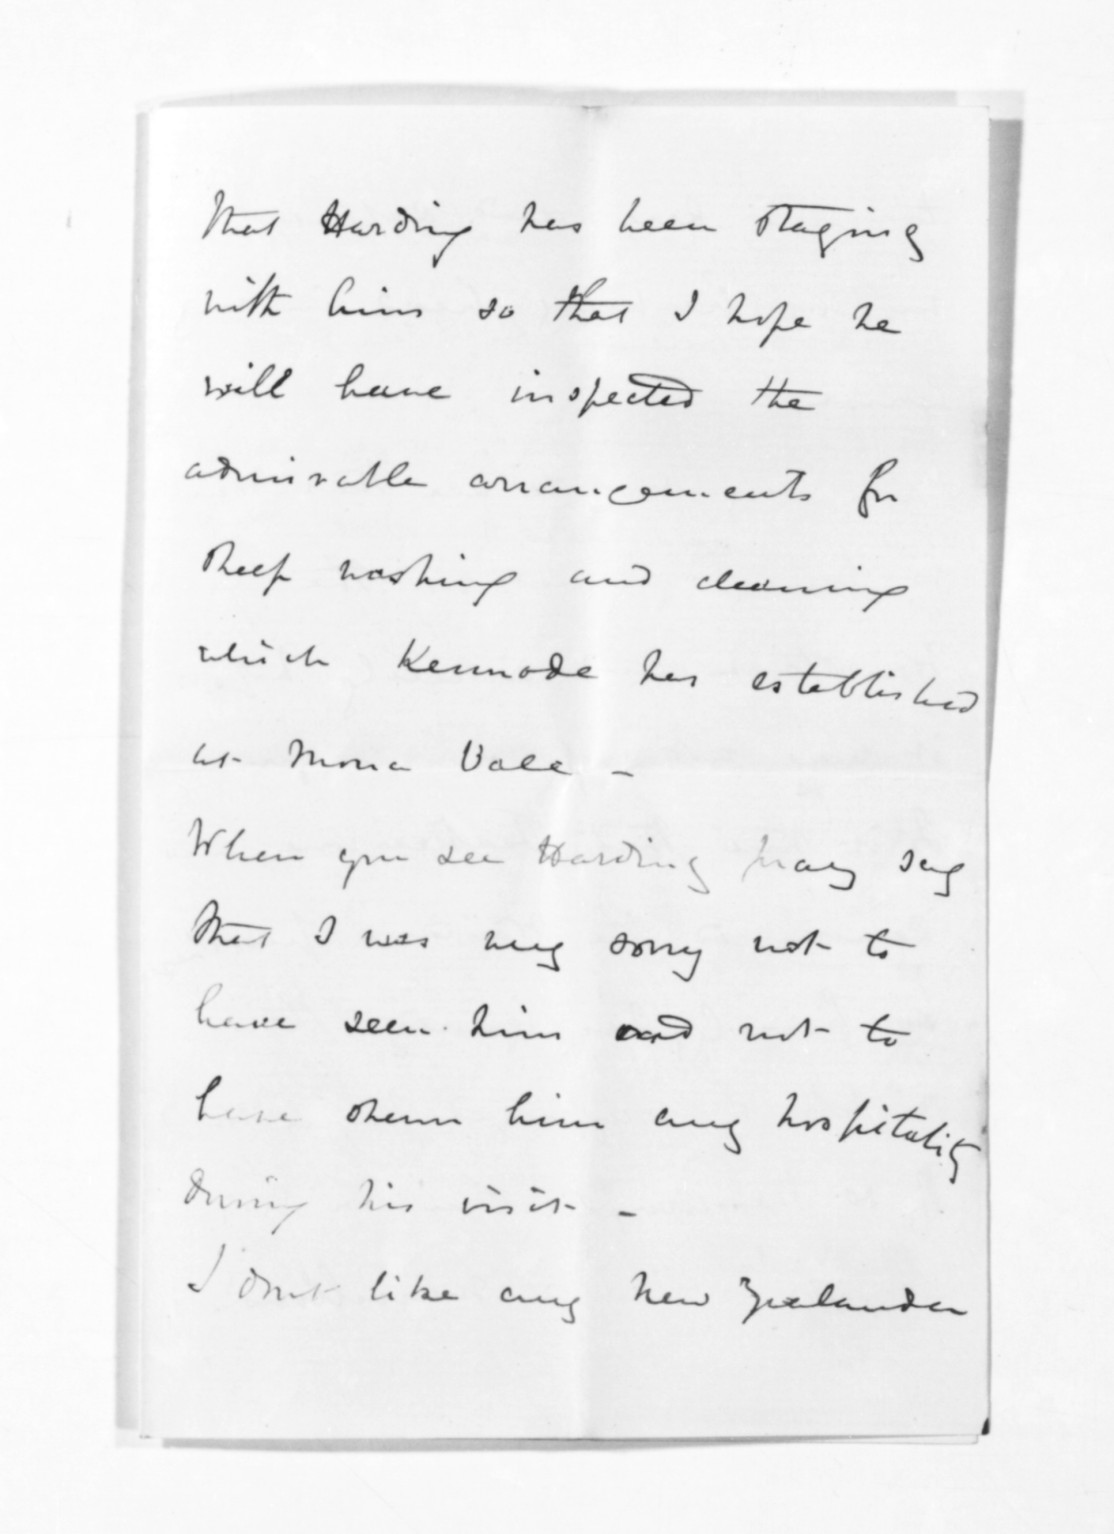 that Harding has been staying
with him so that I hope he
will have inspected the
admirable arrangements for
sheep washing and cleaning
which Kermode has established
at Mona Vale -
When you see Harding pray say
that I was very sorry not to
have seen him and not to
have shewn him any hospitality
during his visit -
I dont like any New Zealander